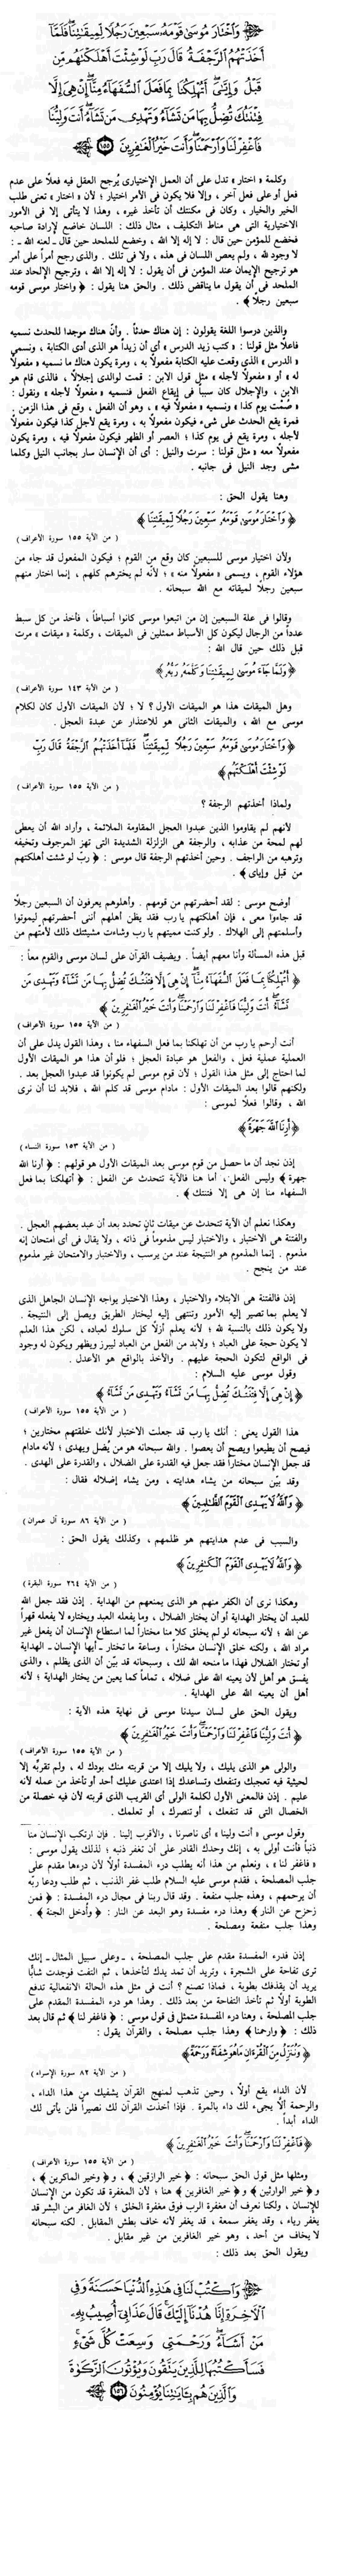 وَٱخْتَارَ مُوسَىٰ قَوْمَهُۥ سَبْعِينَ رَجُلًا لِّمِيقَٰتِنَا ۖ فَلَمَّآ
أَخَذَتْهُمُ ٱلرَّجْفَةُ قَالَ رَبِّ لَوْ شِئْتَ أَهْلَكْتَهُم مِّن
قَبْلُ وَإِيَّٰىَ ۖ أَتُهْلِكُنَا بِمَا فَعَلَ ٱلسُّفَهَآءُ مِنَّآ ۖ إِنْ هِىَ إِلَّا
فِتْنَتُكَ تُضِلُّ بِهَا مَن تَشَآءُ وَتَهْدِى مَن تَشَآءُ ۖ أَنتَ وَلِيُّنَا
فَٱغْفِرْ لَنَا وَٱرْحَمْنَا ۖ وَأَنتَ خَيْرُ ٱلْغَٰفِرِينَ ١٥٥
وكلمة « اختار » تدل على أن العمل الاختيارى يُرجح العقل فيه فعلاً على عدم
فعل أو على فعل آخر ، وإلا فلا يكون فى الأمر اختيار ؛ لأن « اختار » تعنى طلب
الخير والخيار ، وكان فى مكنتك أن تأخذ غيره ، وهذا لا يتأتى إلا فى الأمور
الاختيارية التى هى مناط التكليف ، مثال ذلك : اللسان خاضع لإرادة صاحبه
فخضع للمؤمن حين قال : لا إله إلا الله ، وخضع للملحد حين قال ـ لعنه الله ـ :
لا وجود لله ، ولم يعص اللسان فى هذه ، ولا فى تلك . والذى رجح أمراً على أمر
هو ترجيح الإيمان عند المؤمن فى أن يقول : لا إله إلا الله ، وترجيح الإلحاد عند
الملحد فى أن يقول ما يناقض ذلك . والحق هنا يقول : ﴿ واختار موسى قومه
سبعين رجلاً ﴾ .
والذين درسوا اللغة يقولون : إن هناك حدثاً . وأنَّ هناك موجداً للحدث نسميه
فاعلاً مثل قولنا : « كتب زيد الدرس » أى أن زيداً هو الذى أدى الكتابة ، ونسمى
« الدرس » الذى وقعت عليه الكتابة مفعولاً به ، ومرة يكون هناك ما نسميه « مفعولاً
له » أو « مفعولاً لأجله » مثل قول الابن : قمت لوالدى إجلالاً ، فالذى قام هو
الابن ، والإجلال كان سبباً فى إيقاع الفعل فنسميه « مفعولاً لأجله » ونقول :
« صُمْت يوم كذا » ونسميه « مفعولاً فيه » ، وهو أن الفعل ، وقع فى هذا الزمن .
فمرة يقع الحدث على شىء فيكون مفعولاً به ، ومرة يقع لأجل كذا فيكون مفعولاً
لأجله ، ومرة يقع فى يوم كذا ؛ العصر أو الظهر فيكون مفعولاً فيه ، ومرة يكون
مفعولاً معه « مثل قولنا : سرت والنيل : أى أن الإنسان سار بجانب النيل وكلما
مشى وجد النيل فى جانبه .
وهنا يقول الحق :
﴿ وَٱخْتَارَ مُوسَىٰ قَوْمَهُۥ سَبْعِينَ رَجُلًا لِّمِيقَٰتِنَا ﴾
( من الآية ١٥٥ سورة الأعراف )
ولأن اختيار موسى للسبعين كان وقع من القوم ؛ فيكون المفعول قد جاء من
هؤلاء القوم ، ويسمى « مفعولاً منه » ؛ لأنه لم يخترهم كلهم ، إنما اختار منهم
سبعين رجلاً لميقاته مع الله سبحانه .
وقالوا فى علة السبعين إن من اتبعوا موسى كانوا أسباطاً ، فأخذ من كل سبط
عدداً من الرجال ليكون كل الأسباط ممثلين فى الميقات ، وكلمة « ميقات » مرت
قبل ذلك حين قال الله :
﴿ وَلَمَّا جَآءَ مُوسَىٰ لِمِيقَٰتِنَا وَكَلَّمَهُۥ رَبُّهُۥ ﴾
( من الآية ١٤٣ سورة الأعراف )
وهل الميقات هذا هو الميقات الأول ؟ لا ؛ لأن الميقات الأول كان لكلام
موسى مع الله ، والميقات الثانى هو للاعتذار عن عبدة العجل .
﴿ وَٱخْتَارَ مُوسَىٰ قَوْمَهُۥ سَبْعِينَ رَجُلًا لِّمِيقَٰتِنَا ۖ فَلَمَّآ أَخَذَتْهُمُ ٱلرَّجْفَةُ قَالَ رَبِّ
لَوْ شِئْتَ أَهْلَكْتَهُم ﴾
( من الآية ١٥٥ سورة الأعراف )
ولماذا أخذتهم الرجفة ؟
لأنهم لم يقاوموا الذين عبدوا العجل المقاومة الملائمة ، وأراد الله أن يعطى
لهم لمحة من عذابه ، والرجفة هى الزلزلة الشديدة التى تهز المرجوف وتخيفه
وترهبه من الراجف . وحين أخذتهم الرجفة قال موسى : ﴿ ربِّ لو شئت أهلكتهم
من قبل وإياى ﴾ .
أوضح موسى : لقد أحضرتهم من قومهم . وأهلوهم يعرفون أن السبعين رجلاً
قد جاءوا معى ، فإن أهلكتهم يا رب فقد يظن أهلهم أننى أحضرتهم ليموتوا
وأسلمتهم إلى الهلاك . ولو كنت مميتهم يا رب وشاءت مشيئتك ذلك لأمتهم من
قبل هذه المسألة وأنا معهم أيضاً . ويضيف القرآن على لسان موسى والقوم معاً :
﴿ أَتُهْلِكُنَا بِمَا فَعَلَ ٱلسُّفَهَآءُ مِنَّآ ۖ إِنْ هِىَ إِلَّا فِتْنَتُكَ تُضِلُّ بِهَا مَن تَشَآءُ وَتَهْدِى مَن
تَشَآءُ ۖ أَنتَ وَلِيُّنَا فَٱغْفِرْ لَنَا وَٱرْحَمْنَا ۖ وَأَنتَ خَيْرُ ٱلْغَٰفِرِينَ ﴾
( من الآية ١٥٥ سورة الأعراف )
أنت أرحم يا رب من أن تهلكنا بما فعل السفهاء منا ، وهذا القول يدل على أن
العملية عملية فعل ، والفعل هو عبادة العجل ؛ فلو أن هذا هو الميقات الأول
لما احتاج إلى مثل هذا القول ؛ لأن قوم موسى لم يكونوا قد عبدوا العجل بعد .
ولكنهم قالوا بعد الميقات الأول : مادام موسى قد كلم الله ، فلابد لنا أن نرى
الله ، وقالوا فعلاً لموسى :
﴿ أَرِنَا ٱللَّهَ جَهْرَةً ﴾
( من الآية ١٥٣ سورة النساء )
إذن نجد أن ما حصل من قوم موسى بعد الميقات الأول هو قولهم : ﴿ أرنا الله
جهرة ﴾ وليس الفعل ، أما هنا فالآية تتحدث عن الفعل : ﴿ أتهلكنا بما فعل
السفهاء منا إن هى إلا فتنتك ﴾ .
وهكذا نعلم أن الآية تتحدث عن ميقات ثانٍ تحدد بعد أن عبد بعضهم العجل .
والفتنة هى الاختبار ، والاختبار ليس مذموماً فى ذاته ، ولا يقال فى أى امتحان إنه
مذموم . إنما المذموم هو النتيجة عند من يرسب ، والاختبار والامتحان غير مذموم
عند من ينجح .
إذن فالفتنة هى الابتلاء والاختبار ، وهذا الاختبار يواجه الإنسان الجاهل الذى
لا يعلم بما تصير إليه الأمور وتنتهى إليه ليختار الطريق ويصل إلى النتيجة .
ولا يكون ذلك بالنسبة لله ؛ لأنه يعلم أزلاً كل سلوك لعباده ، لكن هذا العلم
لا يكون حجة على العباد ؛ ولابد من الفعل من العباد ليبرز ويظهر ويكون له وجود
فى الواقع لتكون الحجة عليهم . والأخذ بالواقع هو الأعدل .
وقول موسى عليه السلام :
﴿ إِنْ هِىَ إِلَّا فِتْنَتُكَ تُضِلُّ بِهَا مَن تَشَآءُ وَتَهْدِى مَن تَشَآءُ ﴾
( من الآية ١٥٥ سورة الأعراف )
هذا القول يعنى : أنك يا رب قد جعلت الاختبار لأنك خلقتهم مختارين ؛
فيصح أن يطيعوا ويصح أن يعصوا . والله سبحانه هو من يُضل ويهدى ؛ لأنه مادام
قد جعل الإنسان مختاراً فقد جعل فيه القدرة على الضلال ، والقدرة على الهدى .
وقد بيّن سبحانه من يشاء هدايته ، ومن يشاء إضلاله فقال :
﴿ وَٱللَّهُ لَا يَهْدِى ٱلْقَوْمَ ٱلظَّٰلِمِينَ ﴾
( من الآية ٨٦ سورة آل عمران )
والسبب فى عدم هدايتهم هو ظلمهم ، وكذلك يقول الحق :
﴿ وَٱللَّهُ لَا يَهْدِى ٱلْقَوْمَ ٱلْكَٰفِرِينَ ﴾
( من الآية ٢٦٤ سورة البقرة )
وهكذا نرى أن الكفر منهم هو الذى يمنعهم من الهداية . إذن فقد جعل الله
للعبد أن يختار الهداية أو أن يختار الضلال ، وما يفعله العبد ويختاره لا يفعله قهراً
عن الله ؛ لأنه سبحانه لو لم يخلق كلا منا مختاراً لما استطاع الإنسان أن يفعل غير
مراد الله ، ولكنه خلق الإنسان مختاراً ، وساعة ما تختار ـ أيها الإنسان ـ الهداية
أو تختار الضلال فهذا ما منحه الله لك ، وسبحانه قد بيّن أن الذى يظلم ، والذى
يفسق هو أهل لأن يعينه الله على ضلاله ، تماماً كما يعين من يختار الهداية ؛ لأنه
أهل أن يعينه الله على الهداية .
ويقول الحق على لسان سيدنا موسى فى نهاية هذه الآية :
﴿ أَنتَ وَلِيُّنَا فَٱغْفِرْ لَنَا وَٱرْحَمْنَا ۖ وَأَنتَ خَيْرُ ٱلْغَٰفِرِينَ ﴾
( من الآية ١٥٥ سورة الأعراف )
والولى هو الذى يليك ، ولا يليك إلا من قربته منك بودك له ، ولم تقربه إلا
لحيثية فيه تعجبك وتنفعك وتساعدك إذا اعتدى عليك أحد أو تأخذ من عمله لأنه
عليم . إذن فالمعنى الأول لكلمة الولى أى القريب الذى قربته لأن فيه خصلة من
الخصال التى قد تنفعك ، أو تنصرك ، أو تعلمك .
وقول موسى « أنت ولينا » أى ناصرنا ، والأقرب إلينا . فإن ارتكب الإنسان منا
ذنباً فأنت أولى به ، إنك وحدك القادر على أن تغفر ذنبه ؛ لذلك يقول موسى :
« فاغفر لنا » ، ونعلم من هذا أنه يطلب درء المفسدة أولاً لأن درءها مقدم على
جلب المصلحة ، فقدم موسى عليه السلام طلب غفر الذنب ، ثم طلب ودعا ربّه
أن يرحمهم ، وهذه جلب منفعة . وقد قال ربنا فى مجال درء المفسدة : ﴿ فمن
زحزح عن النار ﴾ وهذا درء مفسدة وهو البعد عن النار : ﴿ وأدخل الجنة ﴾ .
وهذا جلب منفعة ومصلحة .
إذن فدرء المفسدة مقدم على جلب المصلحة ، ـ وعلى سبيل المثال ـ إنك
ترى تفاحة على الشجرة ، وتريد أن تمد يدك لتأخذها ، ثم التفت فوجدت شاباً
يريد أن يقذفك بطوبة ، فماذا تصنع ؟ أنت فى مثل هذه الحالة الانفعالية تدفع
الطوبة أولاً ثم تأخذ التفاحة من بعد ذلك . وهذا هو درء المفسدة المقدم على
جلب المصلحة ، وهنا درء المفسدة متمثل فى قول موسى : ﴿ فاغفر لنا ﴾ ثم قال بعد
ذلك : ﴿ وارحمنا ﴾ وهذا جلب مصلحة ، والقرآن يقول :
﴿ وَنُنَزِّلُ مِنَ ٱلْقُرْءَانِ مَا هُوَ شِفَآءٌ وَرَحْمَةٌ ﴾
( من الآية ٨٢ سورة الإسراء )
لأن الداء يقع أولاً ، وحين تذهب لمنهج القرآن يشفيك من هذا الداء ،
والرحمة ألاّ يجىء لك داء بالمرة . فإذا أخذت القرآن لك نصيراً فلن يأتى لك
الداء أبداً .
﴿ فَٱغْفِرْ لَنَا وَٱرْحَمْنَا ۖ وَأَنتَ خَيْرُ ٱلْغَٰفِرِينَ ﴾
( من الآية ١٥٥ سورة الأعراف )
ومثلها مثل قول الحق سبحانه : ﴿ خير الرازقين ﴾ ، و ﴿ وخير الماكرين ﴾ ،
و ﴿ خير الوارثين ﴾ و ﴿ خير الغافرين ﴾ هنا ؛ لأن المغفرة قد تكون من الإنسان
للإنسان ، ولكنا نعرف أن مغفرة الرب فوق مغفرة الخلق ؛ لأن الغافر من البشر قد
يغفر رياء ، وقد يغفر سمعة ، قد يغفر لأنه خاف بطش المقابل . لكنه سبحانه
لا يخاف من أحد ، وهو خير الغافرين من غير مقابل .
ويقول الحق بعد ذلك :
وَٱكْتُبْ لَنَا فِى هَٰذِهِ ٱلدُّنْيَا حَسَنَةً وَفِى
ٱلْءَاخِرَةِ إِنَّا هُدْنَآ إِلَيْكَ ۚ قَالَ عَذَابِىٓ أُصِيبُ بِهِۦ
مَنْ أَشَآءُ ۖ وَرَحْمَتِى وَسِعَتْ كُلَّ شَىْءٍ ۚ
فَسَأَكْتُبُهَا لِلَّذِينَ يَتَّقُونَ وَيُؤْتُونَ ٱلزَّكَوٰةَ
وَٱلَّذِينَ هُم بِـَٔايَٰتِنَا يُؤْمِنُونَ ١٥٦